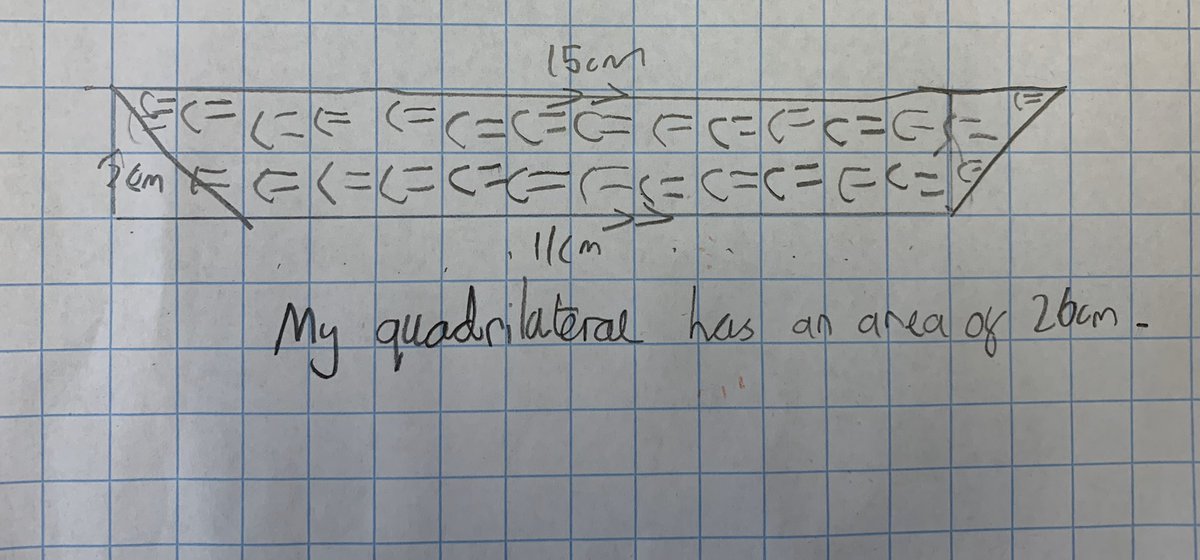 15cm
2cm
11cm
My quadrilateral has an area of 26cm.